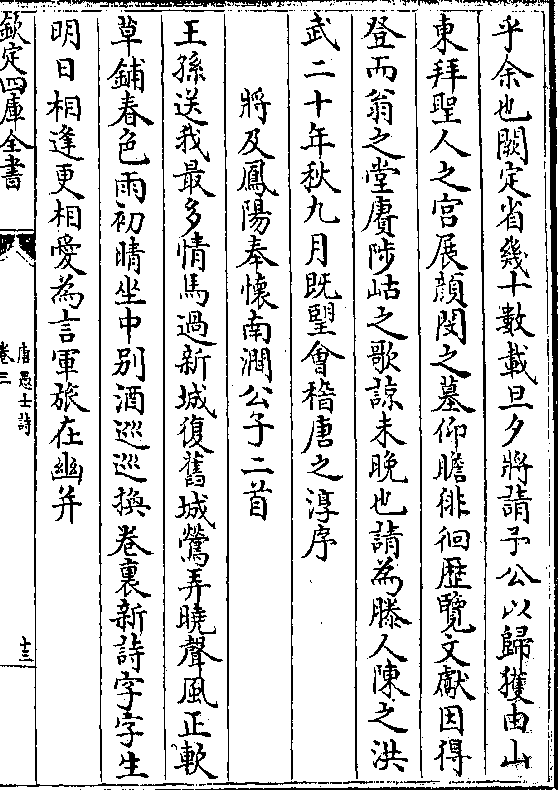 乎余也闕定省幾十數載旦夕將請予公以歸獲由山
東拜聖人之宮展顏閔之墓仰瞻徘徊歷覽文獻因得
登而翁之堂賡陟岵之歌諒未晚也請為滕人陳之洪
武二十年秋九月既朢會稽唐之淳序
將及鳳陽奉懷南澗公子二首
王孫送我最多情馬過新城復舊城鶯弄曉聲風正軟
草鋪春色雨初晴坐中別酒巡巡換卷裏新詩字字生
明日相逢更相愛為言軍旅在幽并
欽定四庫全書
唐愚士詩
卷三
十三